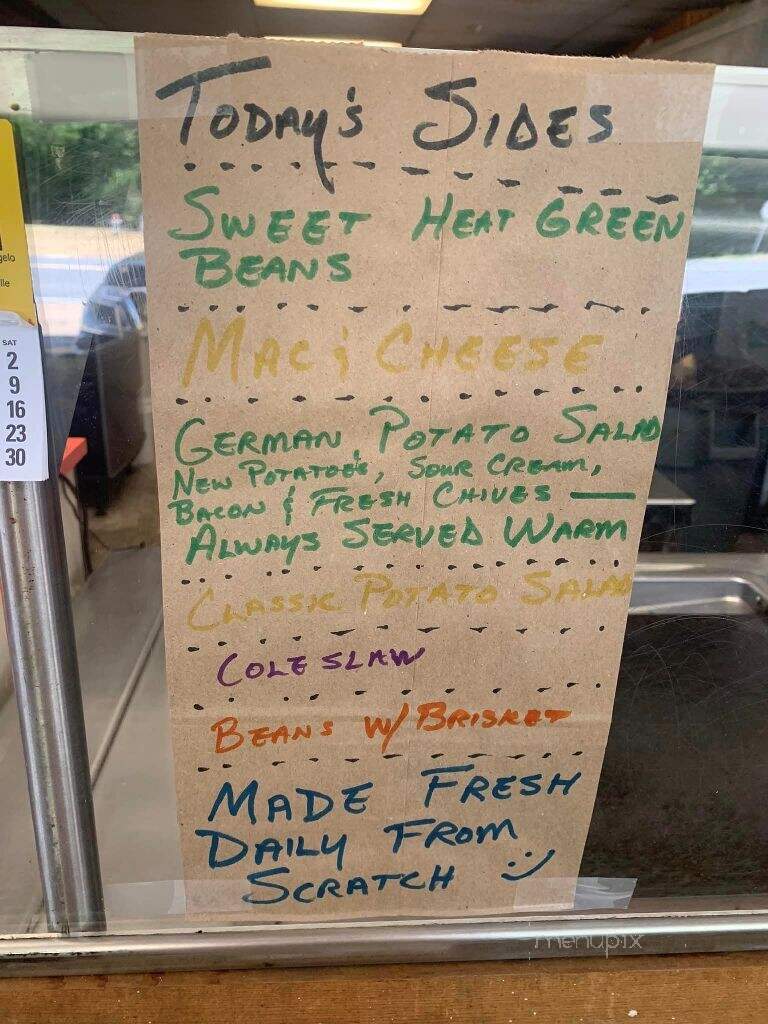 TODAY'S SIDES
SWEET HEAT GREEN
BEANS
MAC & CHEESE
GERMAN POTATO SALAD
NEW POTATOE'S, SOUR CREAM,
BACON & FRESH CHIVES —
ALWAYS SERVED WARM
CLASSIC POTATO SALAD
COLE SLAW
BEANS W/ BRISKET
MADE FRESH
DAILY FROM
SCRATCH :)
gelo
lle
SAT
2
9
16
23
30
menupix